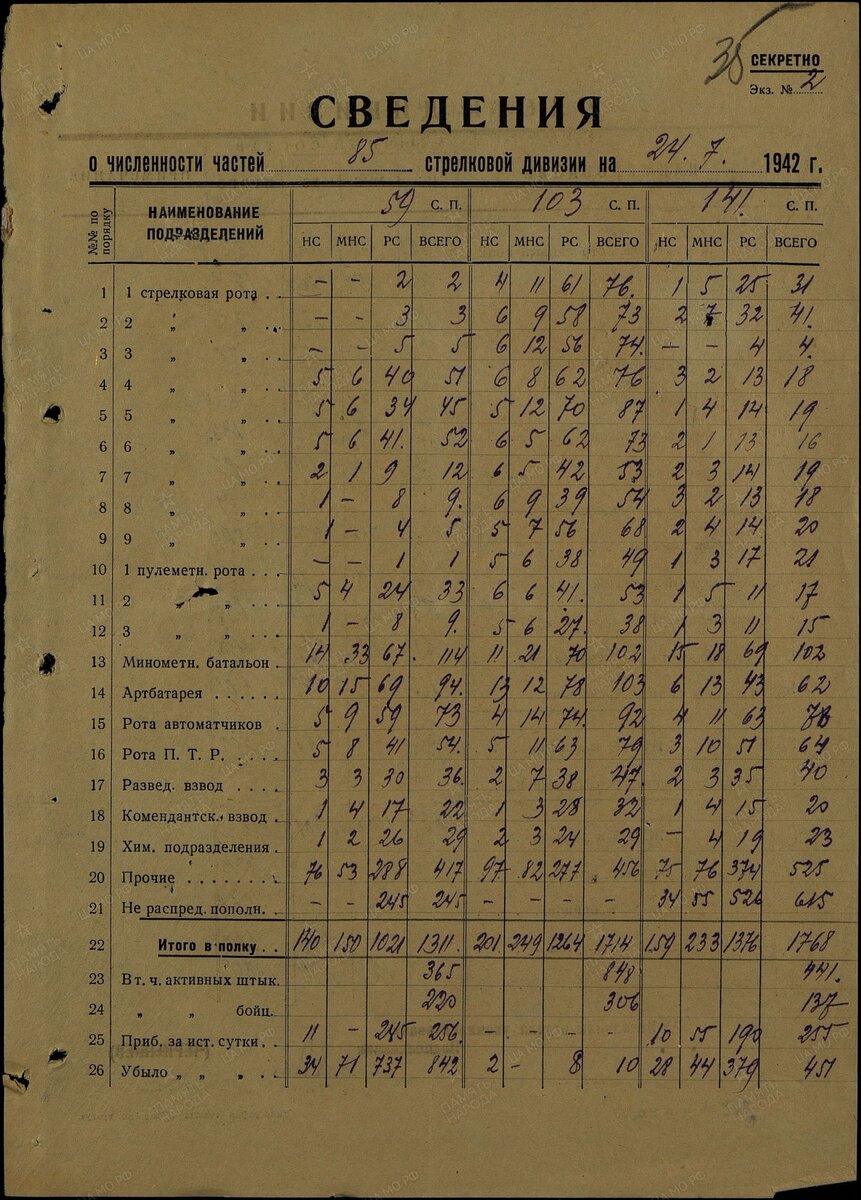 35
СЕКРЕТНО
Экз. № 2
СВЕДЕНИЯ
о численности частей 85 стрелковой дивизии на 24.7. 1942 г.
№№ по порядку | НАИМЕНОВАНИЕ ПОДРАЗДЕЛЕНИЙ | 59 С. П. | 103 С. П. | 141. С. П.
НС | МНС | РС | ВСЕГО | НС | МНС | РС | ВСЕГО | НС | МНС | РС | ВСЕГО
1 | 1 стрелковая рота . . | – | – | 2 | 2 | 4 | 11 | 61 | 76. | 1 | 5 | 25 | 31
2 | 2 „ „ . . | – | – | 3 | 3 | 6 | 9 | 58 | 73 | 2 | 7 | 32 | 41.
3 | 3 „ „ . . | – | – | 5 | 5 | 6 | 12 | 56 | 74. | – | – | 4 | 4.
4 | 4 „ „ . . | 5 | 6 | 40 | 51 | 6 | 8 | 62 | 76 | 3 | 2 | 13 | 18
5 | 5 „ „ . . | 5 | 6 | 34 | 45 | 5 | 12 | 70 | 87 | 1 | 4 | 14 | 19
6 | 6 „ „ . . | 5 | 6 | 41. | 52 | 6 | 5 | 62 | 73 | 2 | 1 | 13 | 16
7 | 7 „ „ . . | 2 | 1 | 9 | 12 | 6 | 5 | 42 | 53 | 2 | 3 | 14 | 19
8 | 8 „ „ . . | 1 | – | 8 | 9. | 6 | 9 | 39 | 54 | 3 | 2 | 13 | 18
9 | 9 „ „ . . | 1 | – | 4 | 5 | 5 | 7 | 56 | 68 | 2 | 4 | 14 | 20
10 | 1 пулеметн. рота . . . | – | – | 1 | 1 | 5 | 6 | 38 | 49 | 1 | 3 | 17 | 21
11 | 2 „ „ . . | 5 | 4 | 24 | 33 | 6 | 6 | 41. | 53 | 1 | 5 | 11 | 17
12 | 3 „ „ . . | 1 | – | 8 | 9. | 5 | 6 | 27. | 38 | 1 | 3 | 11 | 15
13 | Минометн. батальон . | 14 | 33 | 67. | 114 | 11 | 21 | 70 | 102 | 15 | 18 | 69 | 102
14 | Артбатарея . . . . . . | 10 | 15 | 69 | 94. | 13 | 12 | 78 | 103 | 6 | 13 | 43 | 62
15 | Рота автоматчиков . . | 5 | 9 | 59 | 73 | 4 | 14 | 74. | 92 | 4 | 11 | 63 | 78
16 | Рота П. Т. Р. . . . . | 5 | 8 | 41 | 54. | 5 | 11 | 63 | 79 | 3 | 10 | 51 | 64
17 | Развед. взвод . . . . | 3 | 3 | 30 | 36. | 2 | 7 | 38 | 47. | 2 | 3 | 35 | 40
18 | Комендантск. взвод . | 1 | 4 | 17 | 22 | 1 | 3 | 28 | 32 | 1 | 4 | 15 | 20
19 | Хим. подразделения . | 1 | 2 | 26 | 29 | 2 | 3 | 24 | 29 | – | 4 | 19 | 23
20 | Прочие . . . . . . . . | 76 | 53 | 288 | 417 | 97 | 82 | 277 | 456 | 75 | 76 | 374 | 525
21 | Не распред. пополн. . | – | – | 245 | 245 | – | – | – | – | 34 | 55 | 526 | 615
22 | Итого в полку . . | 140 | 150 | 1021 | 1311. | 201 | 249 | 1264 | 1714 | 159 | 233 | 1376 | 1768
23 | В т. ч. активных штык. | 365 | 848 | 441.
24 | „ „ бойц. | 220 | 306 | 137
25 | Приб. за ист. сутки . . | 11 | – | 245 | 256. | – | – | – | – | 10 | 55 | 190 | 255
26 | Убыло „ „ „ . . | 34 | 71 | 737 | 842 | 2 | – | 8 | 10 | 28 | 44 | 379 | 451